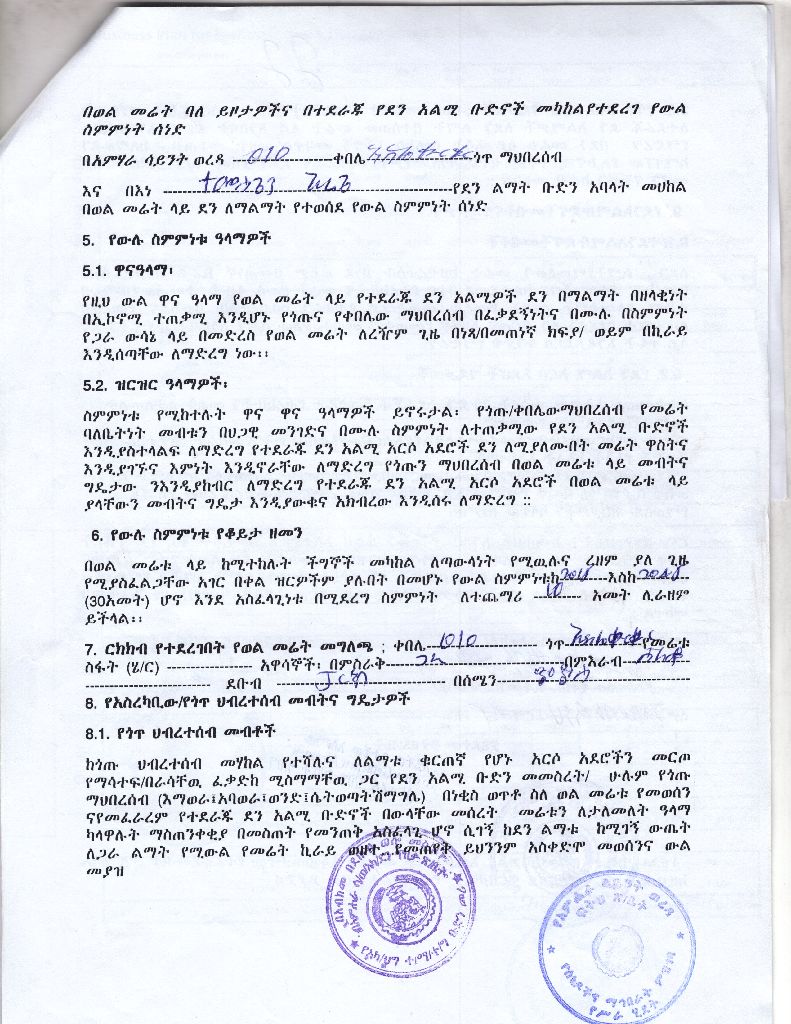 በወል መሬት ባለ ይዞታዎችና በተደራጁ የደን አልሚ ቡድኖች መካከልየተደረገ የውል
ስምምነት ሰነድ
በአምሃራ ሳይንት ወረዳ ---010---ቀበሌ ---ጎጥ ማህበረሰብ
እና በእነ ---የደን ልማት ቡድን አባላት መሀከል
በወል መሬት ላይ ደን ለማልማት የተወሰደ የውል ስምምነት ሰነድ
5. የውሉ ስምምነቱ ዓላማዎች
5.1. ዋናዓላማ፡
የዚህ ውል ዋና ዓላማ የወል መሬት ላይ የተደራጁ ደን አልሚዎች ደን በማልማት በዘላቂነት
በኢኮኖሚ ተጠቃሚ እንዲሆኑ የጎጡና የቀበሌው ማህበረሰብ በፈቃደኝነትና በሙሉ በስምምነት
የጋራ ውሳኔ ላይ በመድረስ የወል መሬት ለረዥም ጊዜ በነጻ/በመጠነኛ ክፍያ/ ወይም በኪራይ
እንዲሰጣቸው ለማድረግ ነው፡፡
5.2. ዝርዝር ዓላማዎች፡
ስምምነቱ የሚከተሉት ዋና ዋና ዓላማዎች ይኖሩታል፡ የጎጡ/ቀበሌውማህበረሰብ የመሬት
ባለቤትነት መብቱን በህጋዊ መንገድና በሙሉ ስምምነት ለተጠቃሚው የደን አልሚ ቡድኖች
እንዲያስተላልፍ ለማድረግ የተደራጁ ደን አልሚ አርሶ አደሮች ደን ለሚያለሙበት መሬት ዋስትና
እንዲያገኙና እምነት እንዲኖራቸው ለማድረግ የጎጡን ማህበረሰብ በወል መሬቱ ላይ መብትና
ግዴታው ንእንዲያከብር ለማድረግ የተደራጁ ደን አልሚ አርሶ አደሮች በወል መሬቱ ላይ
ያላቸውን መብትና ግዴታ እንዲያውቁና አክብረው እንዲሰሩ ለማድረግ ::
6. የውሉ ስምምነቱ የቆይታ ዘመን
በወል መሬቱ ላይ ከሚተከሉት ችግኞች መካከል ለጣውላነት የሚዉሉና ረዘም ያለ ጊዜ
የሚያስፈልጋቸው አገር በቀል ዝርዎችም ያሉበት በመሆኑ የውል ስምምነቱከ2018---እስከ2048---
(30አመት) ሆኖ እንደ አስፈላጊነቱ በሚደረግ ስምምነት ለተጨማሪ ---10--- አመት ሊራዘም
ይችላል፡፡
7. ርክክብ የተደረገበት የወል መሬት መግለጫ ; ቀበሌ---010--- ጎጥ---የመሬቱ
ስፋት (ሄ/ር) --- አዋሳኞች፡ በምስራቅ---በምእራብ---
--- ደቡብ --- በሰሜን---
8. የአስረካቢው/የጎጥ ህብረተሰብ መብትና ግዴታዎች
8.1. የጎጥ ህብረተሰብ መብቶች
ከጎጡ ህብረተሰብ መሃከል የተሻሉና ለልማቱ ቁርጠኛ የሆኑ አርሶ አደሮችን መርጦ
የማሳተፍ/በራሳቸዉ ፈቃድከ ሚስማማቸዉ ጋር የደን አልሚ ቡድን መመስረት/ ሁሉም የጎጡ
ማህበረሰብ (እማወራ፤አባወራ፤ወንድ፤ሴትወጣትሽማግሌ) በነቂስ ወጥቶ ስለ ወል መሬቱ የመወሰን
ናየመፈራረም የተደራጁ ደን አልሚ ቡድኖች በውላቸው መሰረት መሬቱን ለታለመለት ዓላማ
ካላዋሉት ማስጠንቀቂያ በመስጠት የመንጠቅ አስፈላጊ ሆኖ ሲገኝ ከደን ልማቱ ከሚገኝ ውጤት
ለጋራ ልማት የሚውል የመሬት ኪራይ ወዘተ የመጠየቅ ይህንንም አስቀድሞ መወሰንና ውል
መያዝ